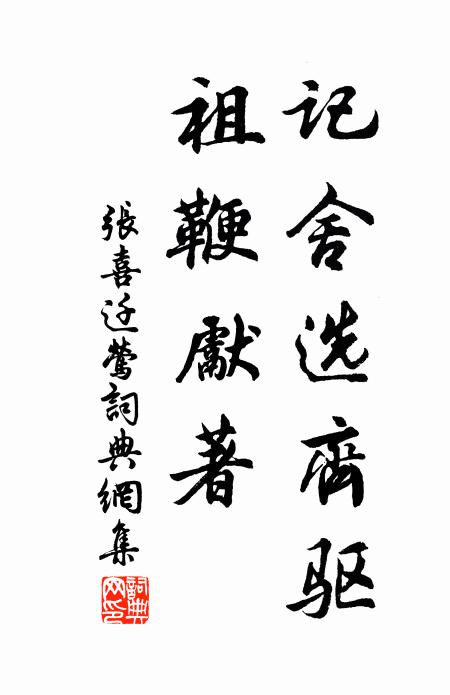 记舍选齊驱
祖鞭獻著
張喜迁鶯詞典網集
詞典网印